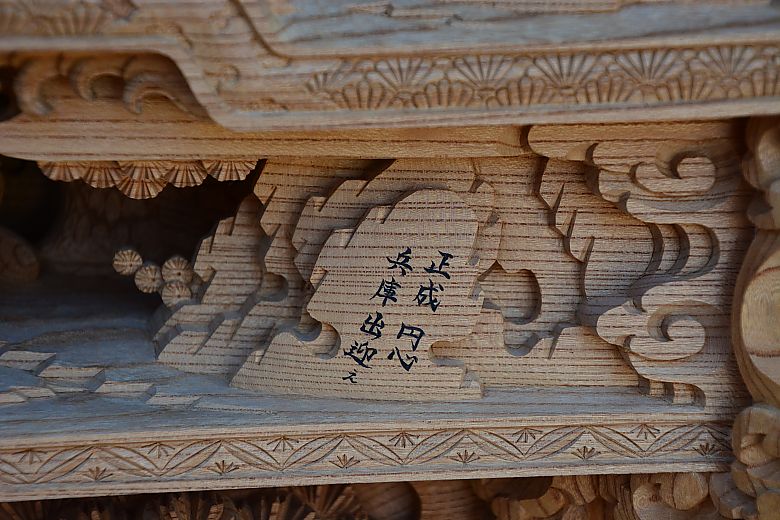 正成 円心
兵庫出迎え